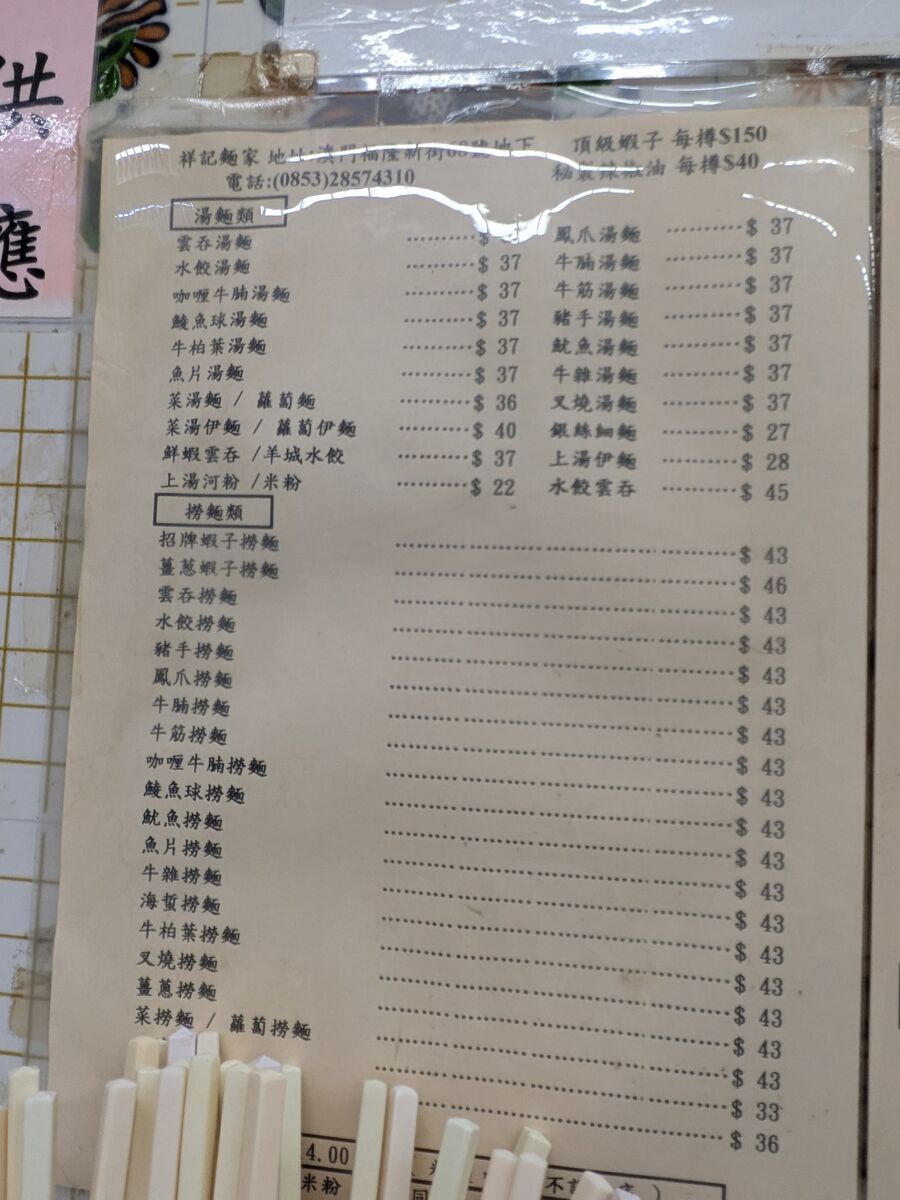 供
應
祥記麵家 地址:澳門福隆新街68號地下
電話:(0853)28574310
頂級蝦子 每樽$150
秘製辣椒油 每樽$40
湯麵類
雲吞湯麵 ··········$
水餃湯麵 ··········$ 37
咖喱牛腩湯麵 ··········$ 37
鯪魚球湯麵 ··········$ 37
牛柏葉湯麵 ··········$ 37
魚片湯麵 ··········$ 37
菜湯麵 / 蘿蔔麵 ··········$ 36
菜湯伊麵 / 蘿蔔伊麵 ··········$ 40
鮮蝦雲吞 /羊城水餃 ··········$ 37
上湯河粉 /米粉 ··········$ 22
鳳爪湯麵 ··········$ 37
牛腩湯麵 ··········$ 37
牛筋湯麵 ··········$ 37
豬手湯麵 ··········$ 37
魷魚湯麵 ··········$ 37
牛雜湯麵 ··········$ 37
叉燒湯麵 ··········$ 37
銀絲細麵 ··········$ 27
上湯伊麵 ··········$ 28
水餃雲吞 ··········$ 45
撈麵類
招牌蝦子撈麵 ··········$ 43
薑蔥蝦子撈麵 ··········$ 46
雲吞撈麵 ··········$ 43
水餃撈麵 ··········$ 43
豬手撈麵 ··········$ 43
鳳爪撈麵 ··········$ 43
牛腩撈麵 ··········$ 43
牛筋撈麵 ··········$ 43
咖喱牛腩撈麵 ··········$ 43
鯪魚球撈麵 ··········$ 43
魷魚撈麵 ··········$ 43
魚片撈麵 ··········$ 43
牛雜撈麵 ··········$ 43
海蜇撈麵 ··········$ 43
牛柏葉撈麵 ··········$ 43
叉燒撈麵 ··········$ 43
薑蔥撈麵 ··········$ 43
菜撈麵 / 蘿蔔撈麵 ··········$ 43
··········$ 33
··········$ 36
4.00
米粉